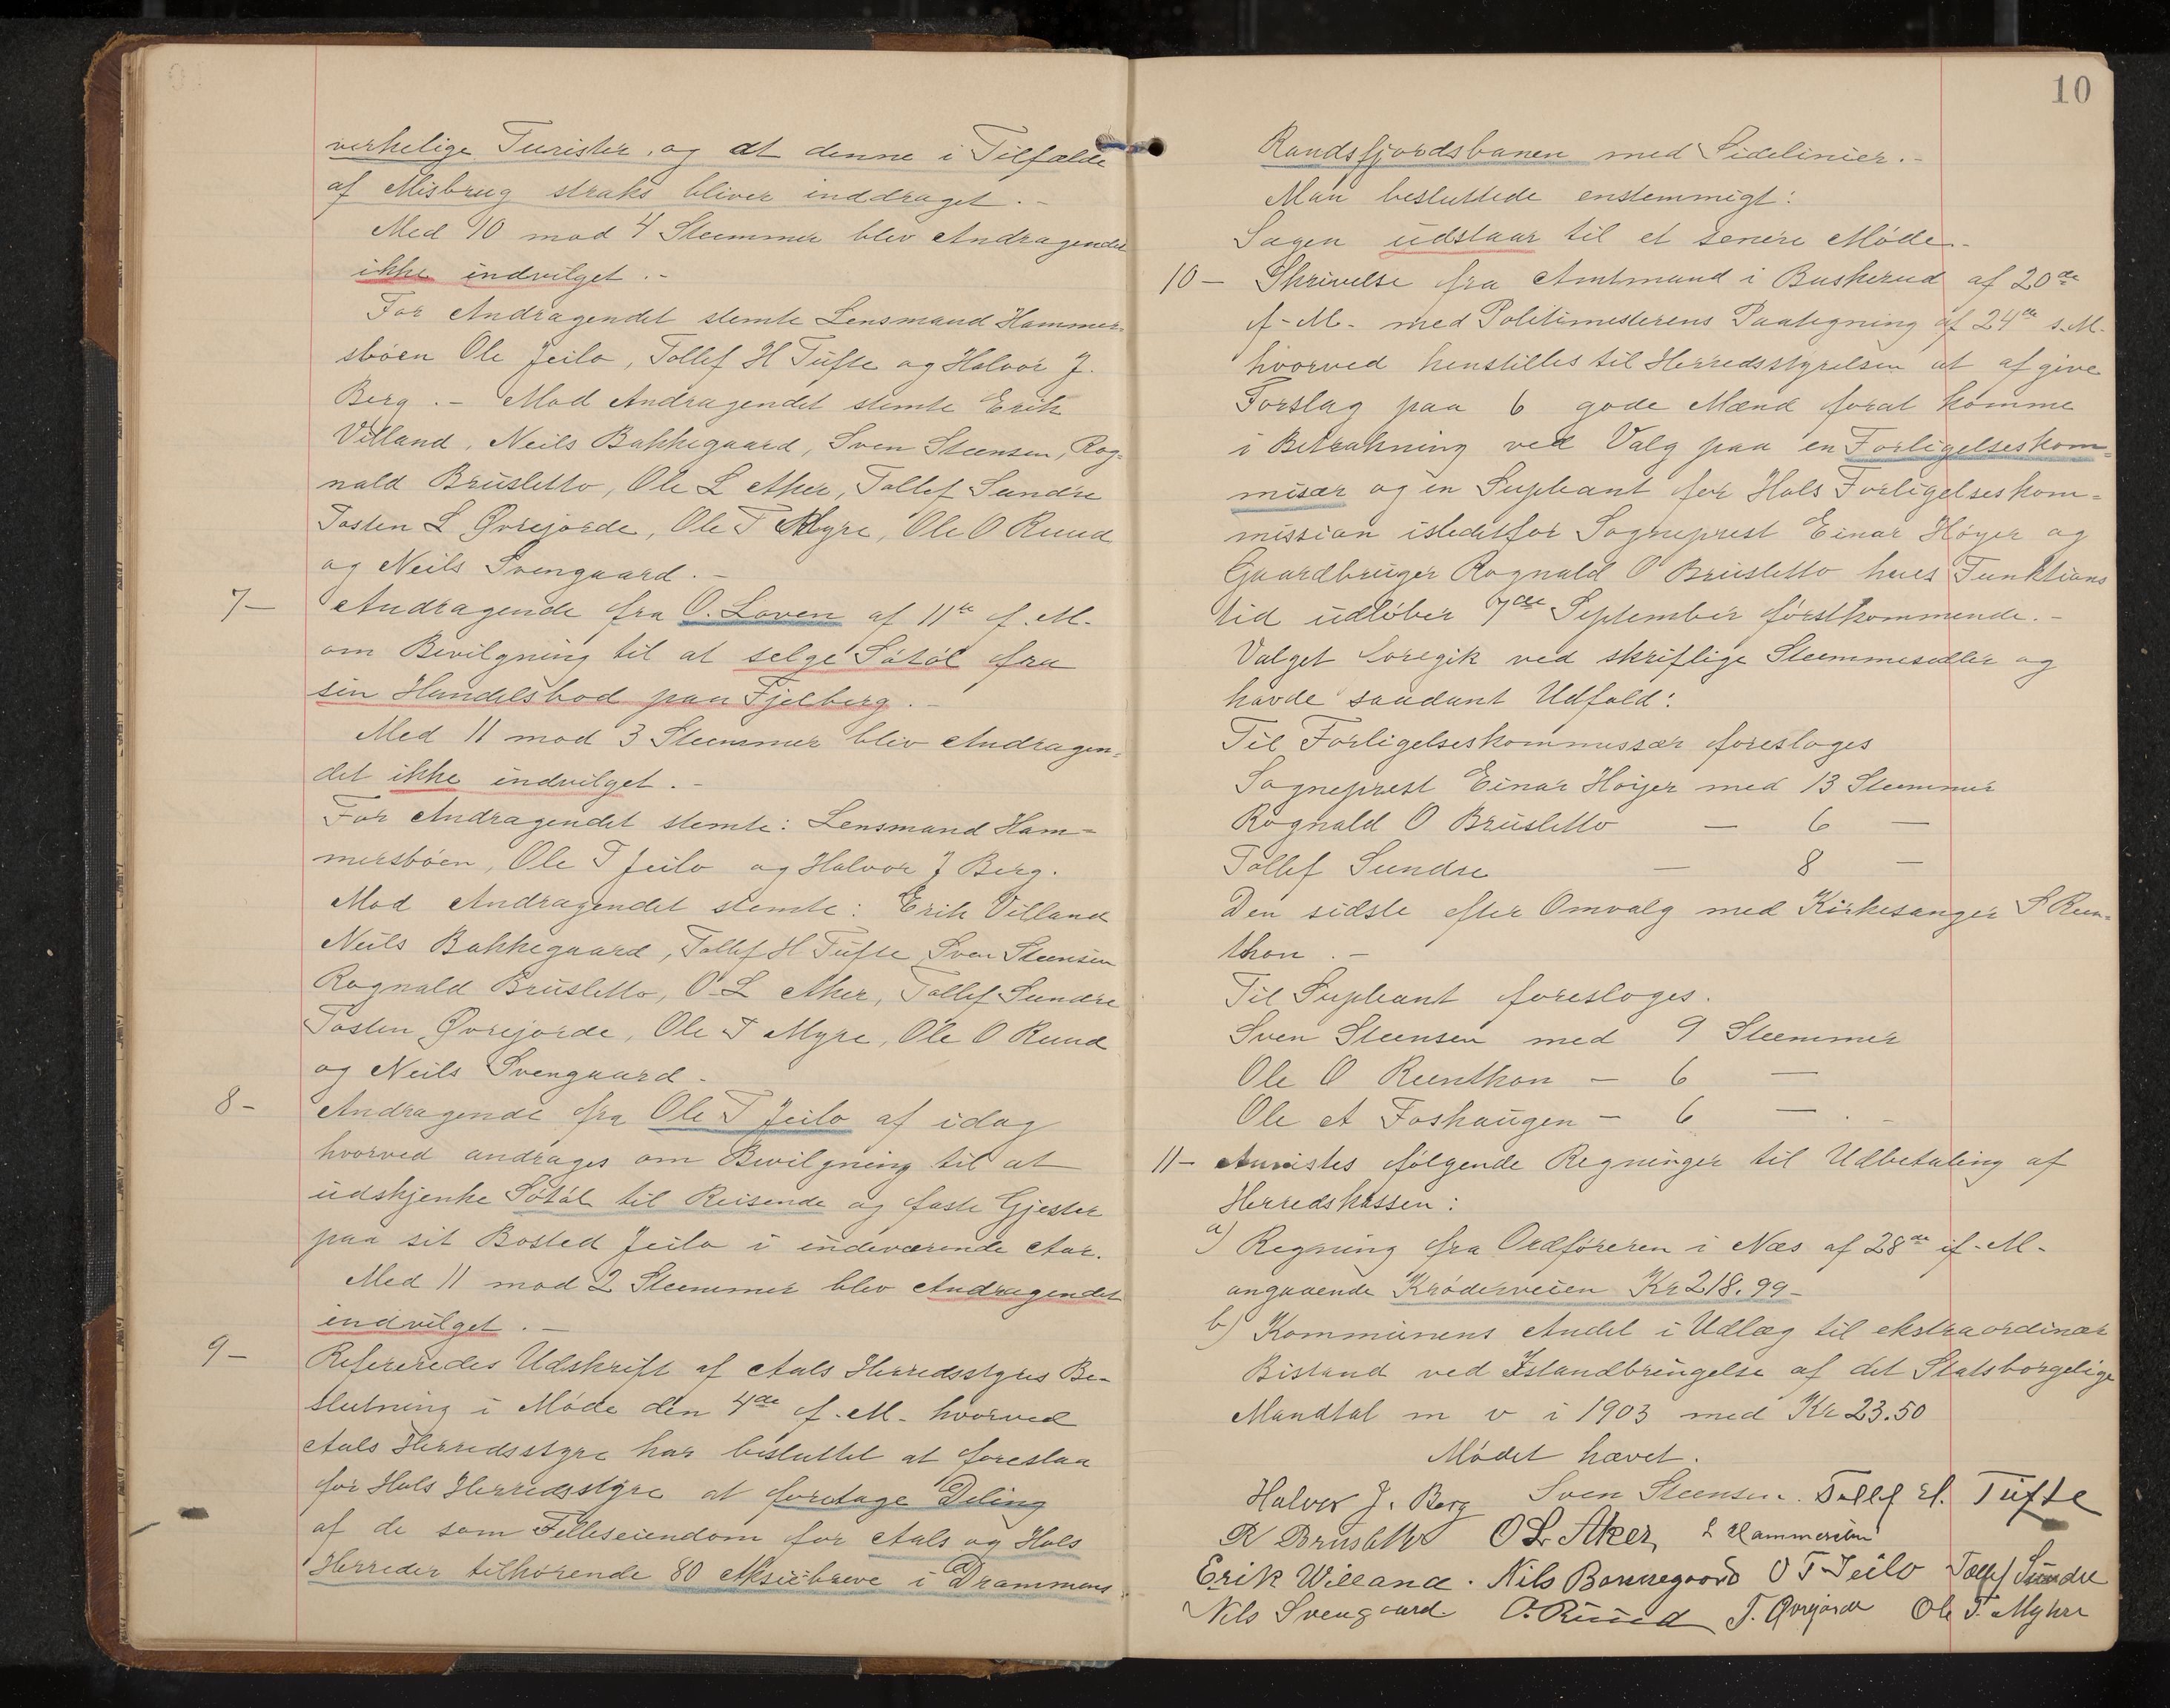 virkelige Turister, og at denne i Tilfælde
af Misbrug straks bliver inddraget. -
Med 10 mod 4 Stemmer blev Andragendet
ikke indvilget. -
For Andragendet stemte Lensmand Hammer-
sbøen Ole Jeilo, Tollef H Tufte og Halvor J.
Berg. - Mod Andragendet stemte Erik
Villand, Neils Bakkegaard, Sven Steensen, Rag-
nald Brusletto, Ole L Aker, Tollef Sundre
Tosten L Øvrejorde, Ole T Myre, Ole O Ruud
og Neils Svengaard. -
7- Andragende fra O. Loven af 11te f.M.
om Bevilgning til at selge Søtøl fra
sin Handelsbod paa Fjelberg. -
Med 11 mod 3 Stemmer blev Andragen-
det ikke indvilget. -
For Andragendet stemte: Lensmand Ham-
mersbøen, Ole T Jeilo og Halvor J Berg.
Mod Andragendet stemte: Erik Villand
Neils Bakkegaard, Tollef H Tufte Sven Steensen
Ragnald Brusletto, O L Aker, Tollef Sundre
Tosten Øvrejorde, Ole T Myre, Ole O Ruud
og Neils Svengaard -
8- Andragende fra Ole T Jeilo af idag
hvorved andrages om Bevilgning til at
udskjenke Søtøl til Reisende og faste Gjester
paa sit Bosted Jeilo i indeværende Aar.
Med 11 mod 2 Stemmer blev Andragendet
indvilget. -
9- Refereredes Udskrift af Aals Herredsstyres Be-
slutning i Møde den 4de f.M. hvorved
Aals Herredsstyre har besluttet at foreslaa
for Hols Herredsstyre at foretage Deling
af de som Felleseiendom for Aals og Hols
Herreder tilhørende 80 Aksiebreve i Drammens
10
Randsfjordsbanen med Sidelinier. -
Man besluttede enstemmigt:
Sagen udstaar til et senere Møde. -
10- Skrivelse fra Amtmand i Buskerud af 20de
f.M. med Politimesterens Paategning af 24de s.M.
hvorved henstilles til Herredsstyrelsen at afgive
Forslag paa 6 gode Mænd forat komme
i Betrakning ved Valg paa en Forligelseskom-
misær og en Supleant for Hols Forligelseskom-
mission istedetfor Sogneprest Einar Høyer og
Gaardbruger Ragnald O Brusletto hves Funktions
tid udløber 7de September førstkommende. -
Valget foregik ved skriftlige Stemmesedler og
havde saadant Udfald:
Til Forligelseskommissær foresloges
Sogneprest Einar Høiyer med 13 Stemmer
Ragnald O Brusletto — 6 —
Tollef Sundre — 8 —
Den sidste efter Omvalg med Kirkesanger S Reen-
thon. -
Til Supleant foresloges.
Sven Steensen med 9 Stemmer
Ole O Reenthon - 6 —
Ole A Foshaugen - 6 — .
11- Anvistes følgende Regninger til Udbetaling af
Herredskassen:
a) Regning fra Ordføreren i Næs af 28de f.M.
angaaende Krøderveien Kr 218.99 -
b) Kommunens Andel i Udlæg til ekstraordinær
Bistand ved Istandbringelse af det Statsborgelige
Mandtal m v i 1903 med Kr 23.50
Mødet hævet.
Halvor J. Berg Sven Steensen. Tollef H. Tufte
R Brusletto O L Aker
Erik Willand. Nils Bakkegaard O T Jeilo Tollef Sundre
Nils Svengaard O. Ruud T. Øvrejorde Ole T. Myhre